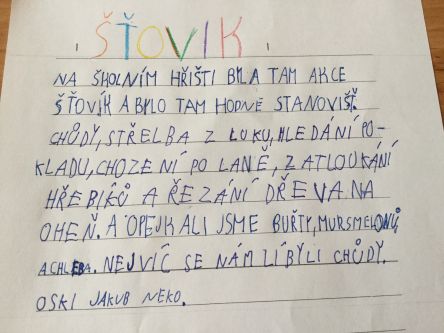 ŠŤOVIK
NA ŠHOLNÍM HŘIŠTI BYLA TAM AKCE
ŠŤOVÍK A BYLO TAM HODNĚ STANOVIŠŤ.
CHŮDY, STŘELBA Z LUKU, HLEDÁNÍ PO-
KLADU, CHOZENÍ PO LANĚ, ZATLOUKÁNÍ
HŘEBÍKŮ A ŘEZÁNÍ DŘEVA NA
OHEŇ. A OPEJKALI JSME BUŘTY, MURSMELONŮ,
A CHLEBA. NEJVÍC SE NÁM LÍBYLI CHŮDY.
OSKI JAKUB NEKO.